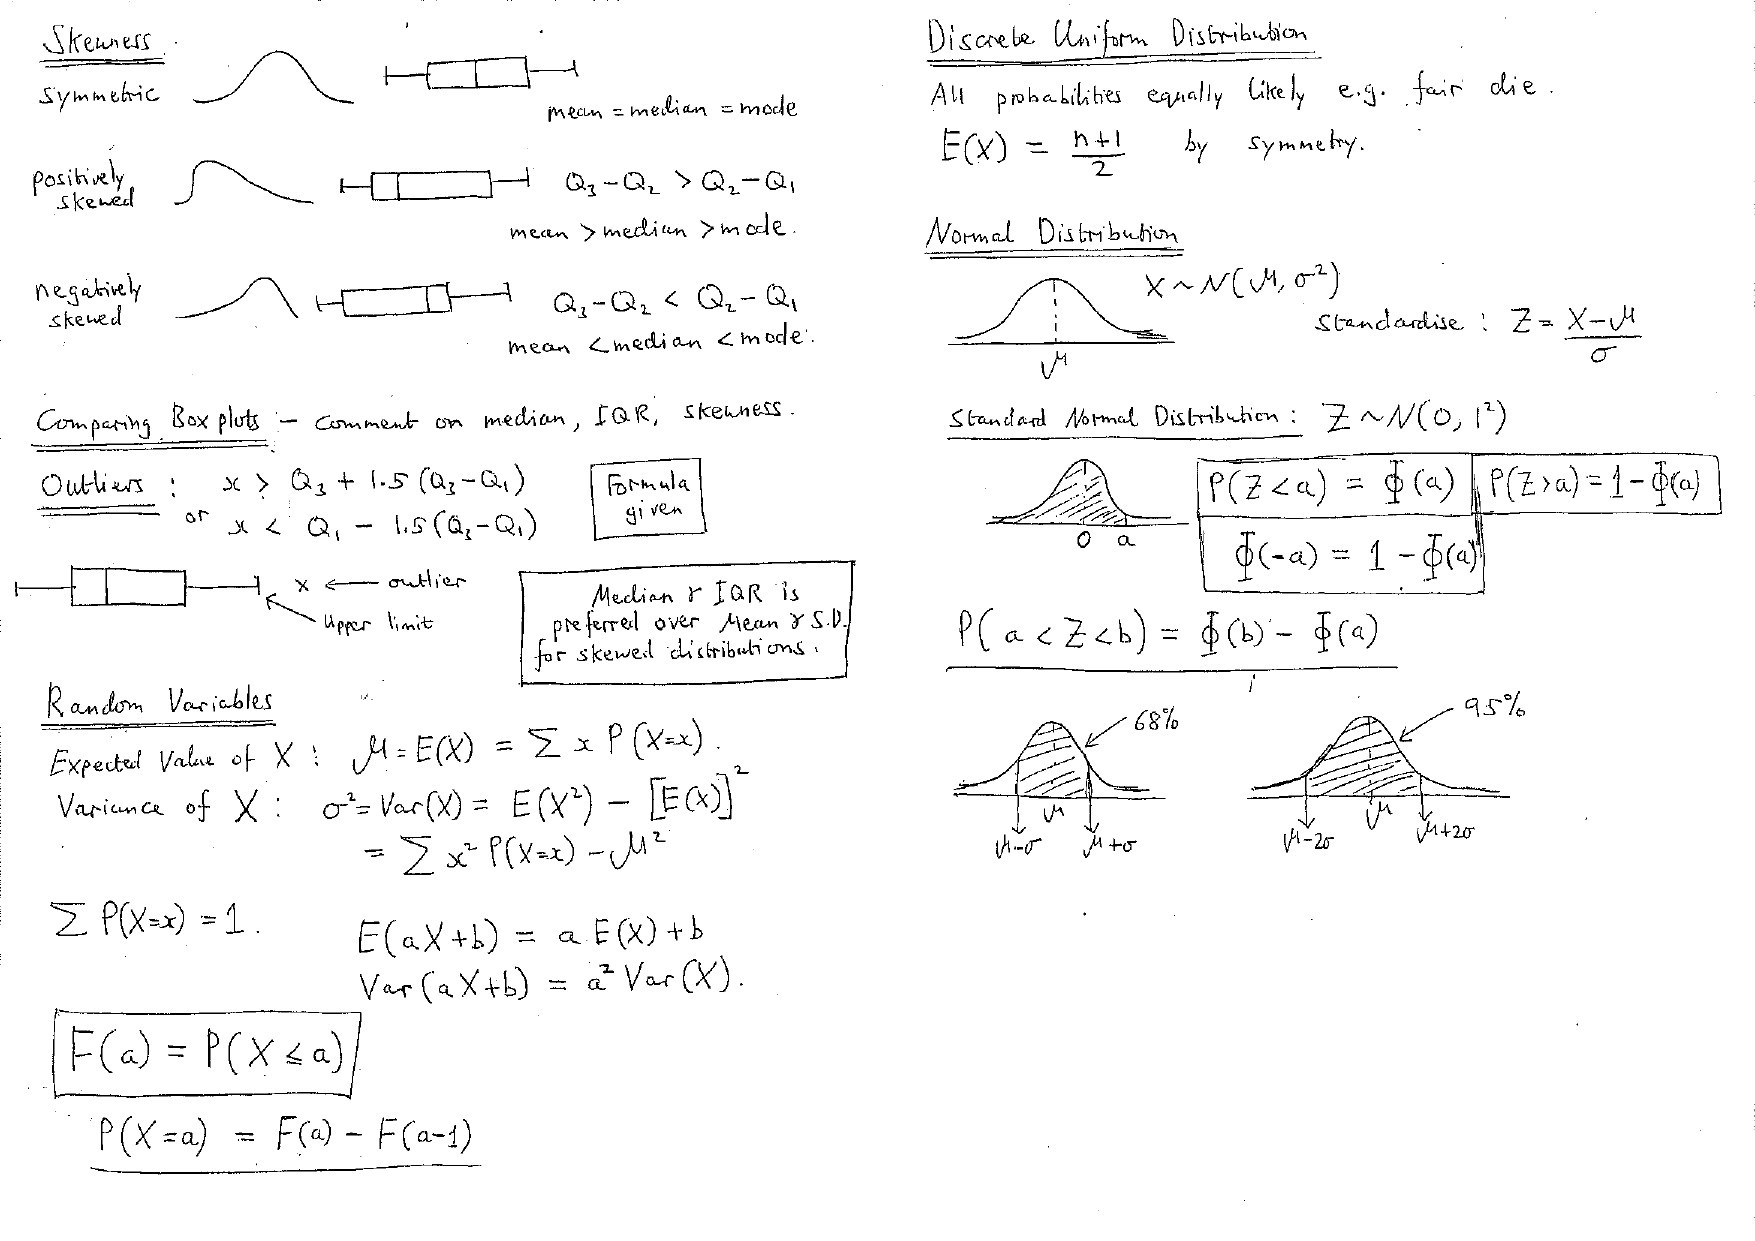 Skewness
symmetric
mean = median = mode
positively skewed
Q₃-Q₂ > Q₂-Q₁
mean > median > mode.
negatively skewed
Q₃-Q₂ < Q₂-Q₁
mean < median < mode.
Comparing Box plots - comment on median, IQR, skewness.
Outliers : x > Q₃ + 1.5 (Q₃-Q₁)
or x < Q₁ - 1.5(Q₃-Q₁)
Formula
given
x ← outlier
Upper limit
Median & IQR is
preferred over Mean & S.D.
for skewed distributions.
Random Variables
Expected Value of X : μ = E(X) = Σ x P(X=x).
Variance of X : σ² = Var(X) = E(X²) - [E(X)]²
= Σ x² P(X=x) - μ²
Σ P(X=x) = 1.
E(aX+b) = a E(X) + b
Var(aX+b) = a² Var(X).
F(a) = P(X ≤ a)
P(X=a) = F(a) - F(a-1)
Discrete Uniform Distribution
All probabilities equally likely e.g. fair die.
E(X) = (n+1)/2 by symmetry.
Normal Distribution
X ~ N(μ, σ²)
Standardise : Z = (X-μ)/σ
μ
Standard Normal Distribution : Z ~ N(0, 1²)
0 a
P(Z<a) = Φ(a)
P(Z>a) = 1 - Φ(a)
Φ(-a) = 1 - Φ(a)
P(a<Z<b) = Φ(b) - Φ(a)
68%
μ-σ μ μ+σ
95%
μ-2σ μ μ+2σ